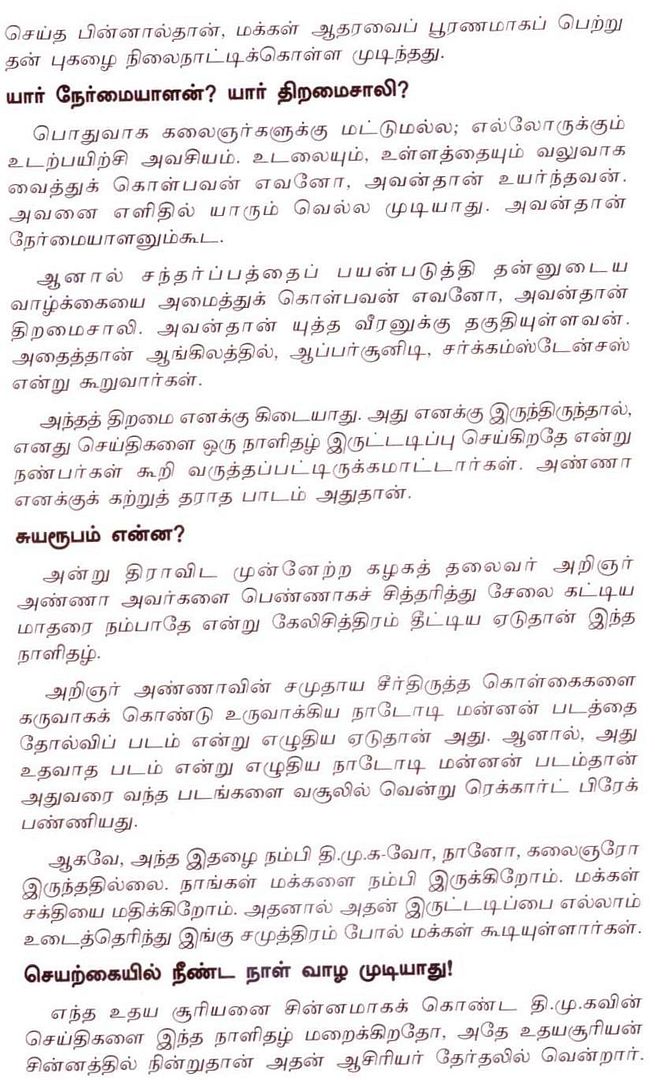 செய்த பின்னால்தான், மக்கள் ஆதரவைப் பூரணமாகப் பெற்று
தன் புகழை நிலைநாட்டிக்கொள்ள முடிந்தது.
யார் நேர்மையாளன்? யார் திறமைசாலி?
பொதுவாக கலைஞர்களுக்கு மட்டுமல்ல; எல்லோருக்கும்
உடற்பயிற்சி அவசியம். உடலையும், உள்ளத்தையும் வலுவாக
வைத்துக் கொள்பவன் எவனோ, அவன்தான் உயர்ந்தவன்.
அவனை எளிதில் யாரும் வெல்ல முடியாது. அவன்தான்
நேர்மையாளனும்கூட.
ஆனால் சந்தர்ப்பத்தைப் பயன்படுத்தி தன்னுடைய
வாழ்க்கையை அமைத்துக் கொள்பவன் எவனோ, அவன்தான்
திறமைசாலி. அவன்தான் யுத்த வீரனுக்கு தகுதியுள்ளவன்.
அதைத்தான் ஆங்கிலத்தில், ஆப்பர்சூனிடி, சர்க்கம்ஸ்டேன்சஸ்
என்று கூறுவார்கள்.
அந்தத் திறமை எனக்கு கிடையாது. அது எனக்கு இருந்திருந்தால்,
எனது செய்திகளை ஒரு நாளிதழ் இருட்டடிப்பு செய்கிறதே என்று
நண்பர்கள் கூறி வருத்தப்பட்டிருக்கமாட்டார்கள். அண்ணா
எனக்குக் கற்றுத் தராத பாடம் அதுதான்.
சுயரூபம் என்ன?
அன்று திராவிட முன்னேற்ற கழகத் தலைவர் அறிஞர்
அண்ணா அவர்களை பெண்ணாகச் சித்தரித்து சேலை கட்டிய
மாதரை நம்பாதே என்று கேலிசித்திரம் தீட்டிய ஏடுதான் இந்த
நாளிதழ்.
அறிஞர் அண்ணாவின் சமுதாய சீர்திருத்த கொள்கைகளை
கருவாகக் கொண்டு உருவாக்கிய நாடோடி மன்னன் படத்தை
தோல்விப் படம் என்று எழுதிய ஏடுதான் அது. ஆனால், அது
உதவாத படம் என்று எழுதிய நாடோடி மன்னன் படம்தான்
அதுவரை வந்த படங்களை வசூலில் வென்று ரெக்கார்ட் பிரேக்
பண்ணியது.
ஆகவே, அந்த இதழை நம்பி தி.மு.க-வோ, நானோ, கலைஞரோ
இருந்ததில்லை. நாங்கள் மக்களை நம்பி இருக்கிறோம். மக்கள்
சக்தியை மதிக்கிறோம். அதனால் அதன் இருட்டடிப்பை எல்லாம்
உடைத்தெரிந்து இங்கு சமுத்திரம் போல் மக்கள் கூடியுள்ளார்கள்.
செயற்கையில் நீண்ட நாள் வாழ முடியாது!
எந்த உதய சூரியனை சின்னமாகக் கொண்ட தி.மு.கவின்
செய்திகளை இந்த நாளிதழ் மறைக்கிறதோ, அதே உதயசூரியன்
சின்னத்தில் நின்றுதான் அதன் ஆசிரியர் தேர்தலில் வென்றார்.